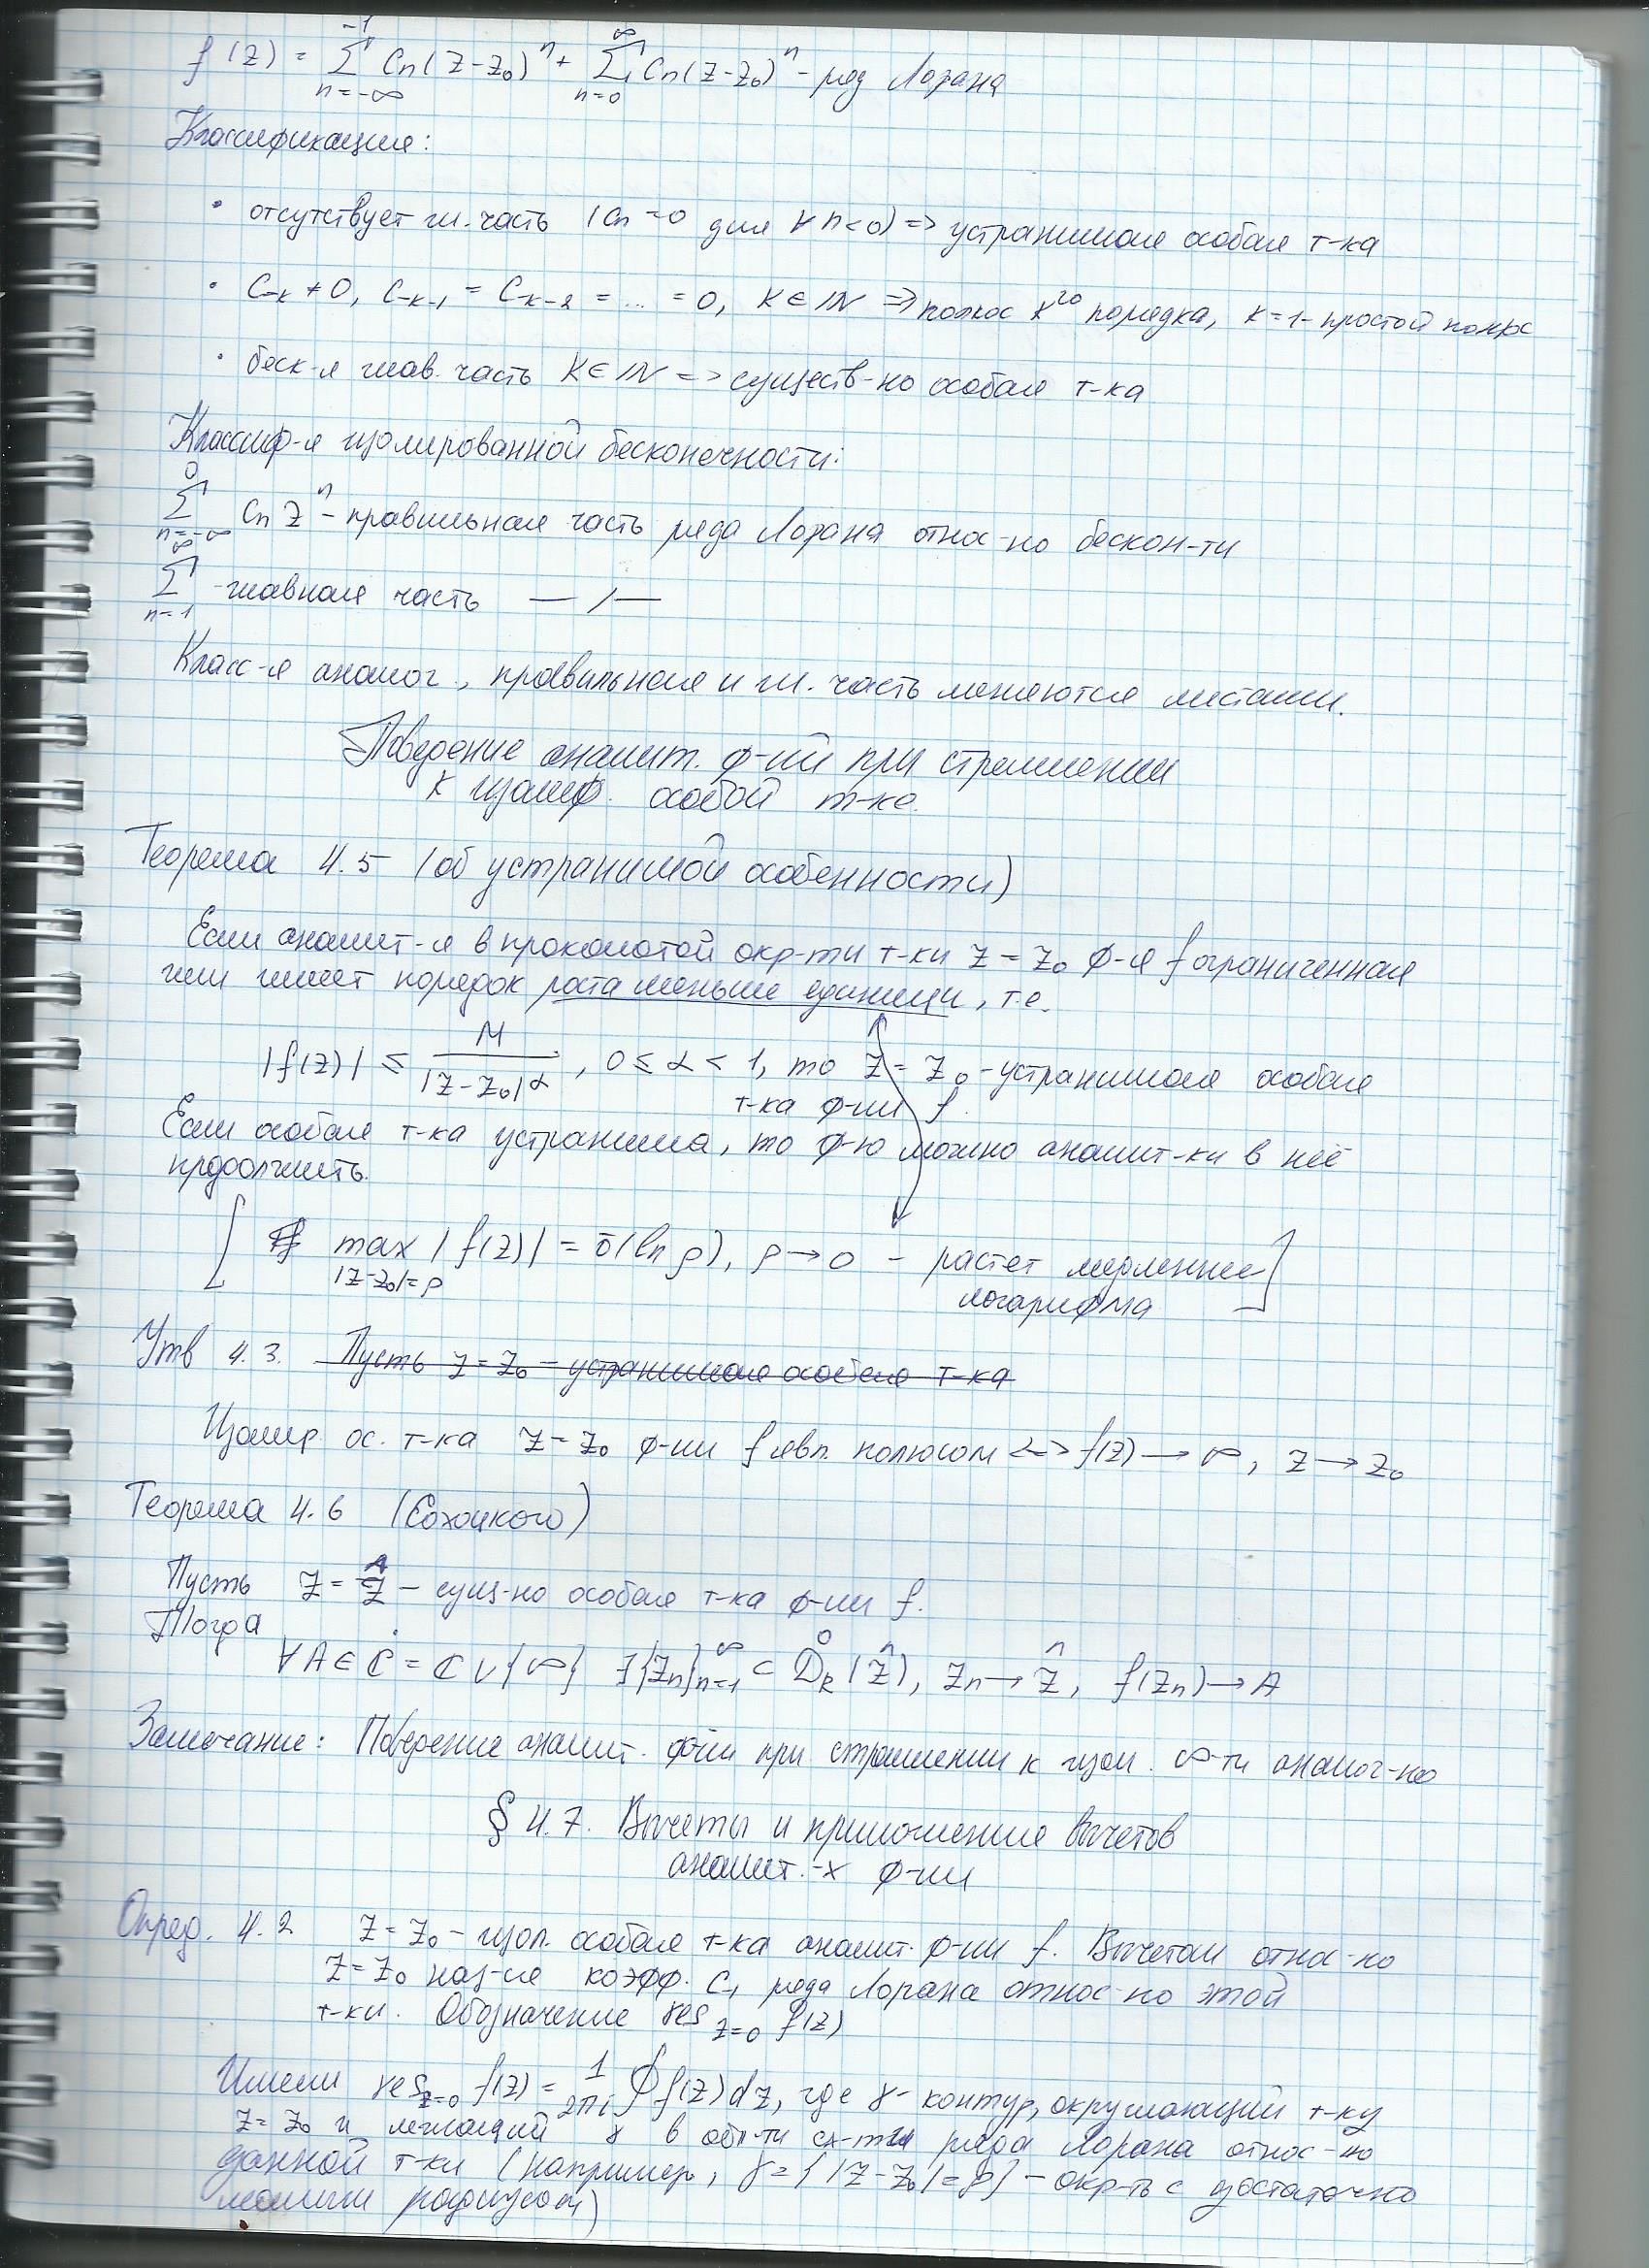 f(z) = \sum_{n=-∞}^{-1} C_n(z-z_0)^n + \sum_{n=0}^{∞} C_n(z-z_0)^n - ряд Лорана
Классификация:
• отсутствует гл. часть (C_n = 0 для ∀ n<0) => устранимая особая т-ка
• C_{-k} ≠ 0, C_{-k-1} = C_{-k-2} = ... = 0, k ∈ ℕ => полюс k^{го} порядка, k=1 - простой полюс
• беск-я глав. часть k ∈ ℕ => существ-но особая т-ка
Классиф-я изолированной бесконечности:
\sum_{n=-∞}^{0} C_n z^n - правильная часть ряда Лорана относ-но бескон-ти
\sum_{n=1}^{∞} - главная часть — / —
Класс-я аналог., правильная и гл. часть меняются местами.
Поведение аналит. ф-ий при стремлении
к изолир. особой т-ке.
Теорема 4.5 (об устранимой особенности)
Если аналит-я в проколотой окр-ти т-ки z = z_0 ф-я f ограниченная
или имеет порядок роста меньше единицы, т.е.
|f(z)| ≤ \frac{M}{|z-z_0|^α}, 0 ≤ α < 1, то z = z_0 - устранимая особая
т-ка ф-ии f.
Если особая т-ка устранима, то ф-ю можно аналит-ки в неё
продолжить.
[ max_{|z-z_0|=ρ} |f(z)| = \bar{o}(ln ρ), ρ → 0 - растет медленнее
логарифма ]
Утв 4.3. Пусть z = z_0 - устранимая особая т-ка
Изолир. ос. т-ка z = z_0 ф-ии f явл. полюсом <=> f(z) → ∞, z → z_0
Теорема 4.6 (Сохоцкого)
Пусть z = \hat{z} - сущ-но особая т-ка ф-ии f.
Тогда
∀ A ∈ \dot{ℂ} = ℂ ∪ {∞} ∃ {z_n}_{n=1}^{∞} ⊂ \mathring{D}_R(\hat{z}), z_n → \hat{z}, f(z_n) → A
Замечание: Поведение аналит. ф-ии при стремлении к изол. ∞-ти аналог-но
§ 4.7. Вычеты и приложение вычетов
аналит.-х ф-ии
Опред. 4.2 z = z_0 - изол. особая т-ка аналит. ф-ии f. Вычетом относ-но
z = z_0 наз-ся коэфф. C_{-1} ряда Лорана относ-но этой
т-ки. Обозначение res_{z=0} f(z)
Имеем res_{z=0} f(z) = \frac{1}{2πi} \oint_γ f(z) dz, где γ - контур, окружающий т-ку
z = z_0 и лежащий γ в обл-ти сх-ти ряда Лорана относ-но
данной т-ки (например, γ = {|z-z_0| = ρ} - окр-ть с достаточно
малым радиусом)